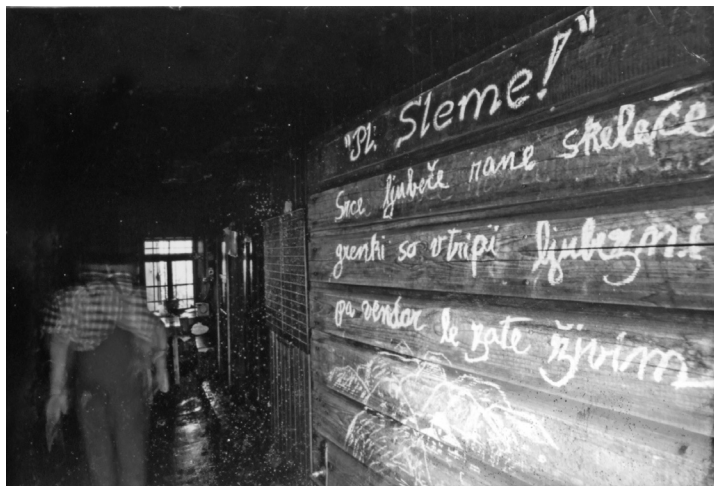 "Pl. Sleme!"
Srce ljubeče rane skeleče
grenki so vtripi ljubezni
pa vendar le zate živim